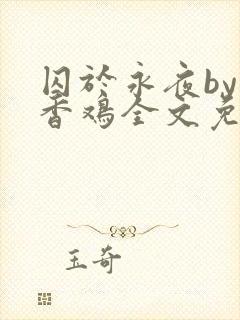 囚於永夜by
香鸡全文免
玉奇